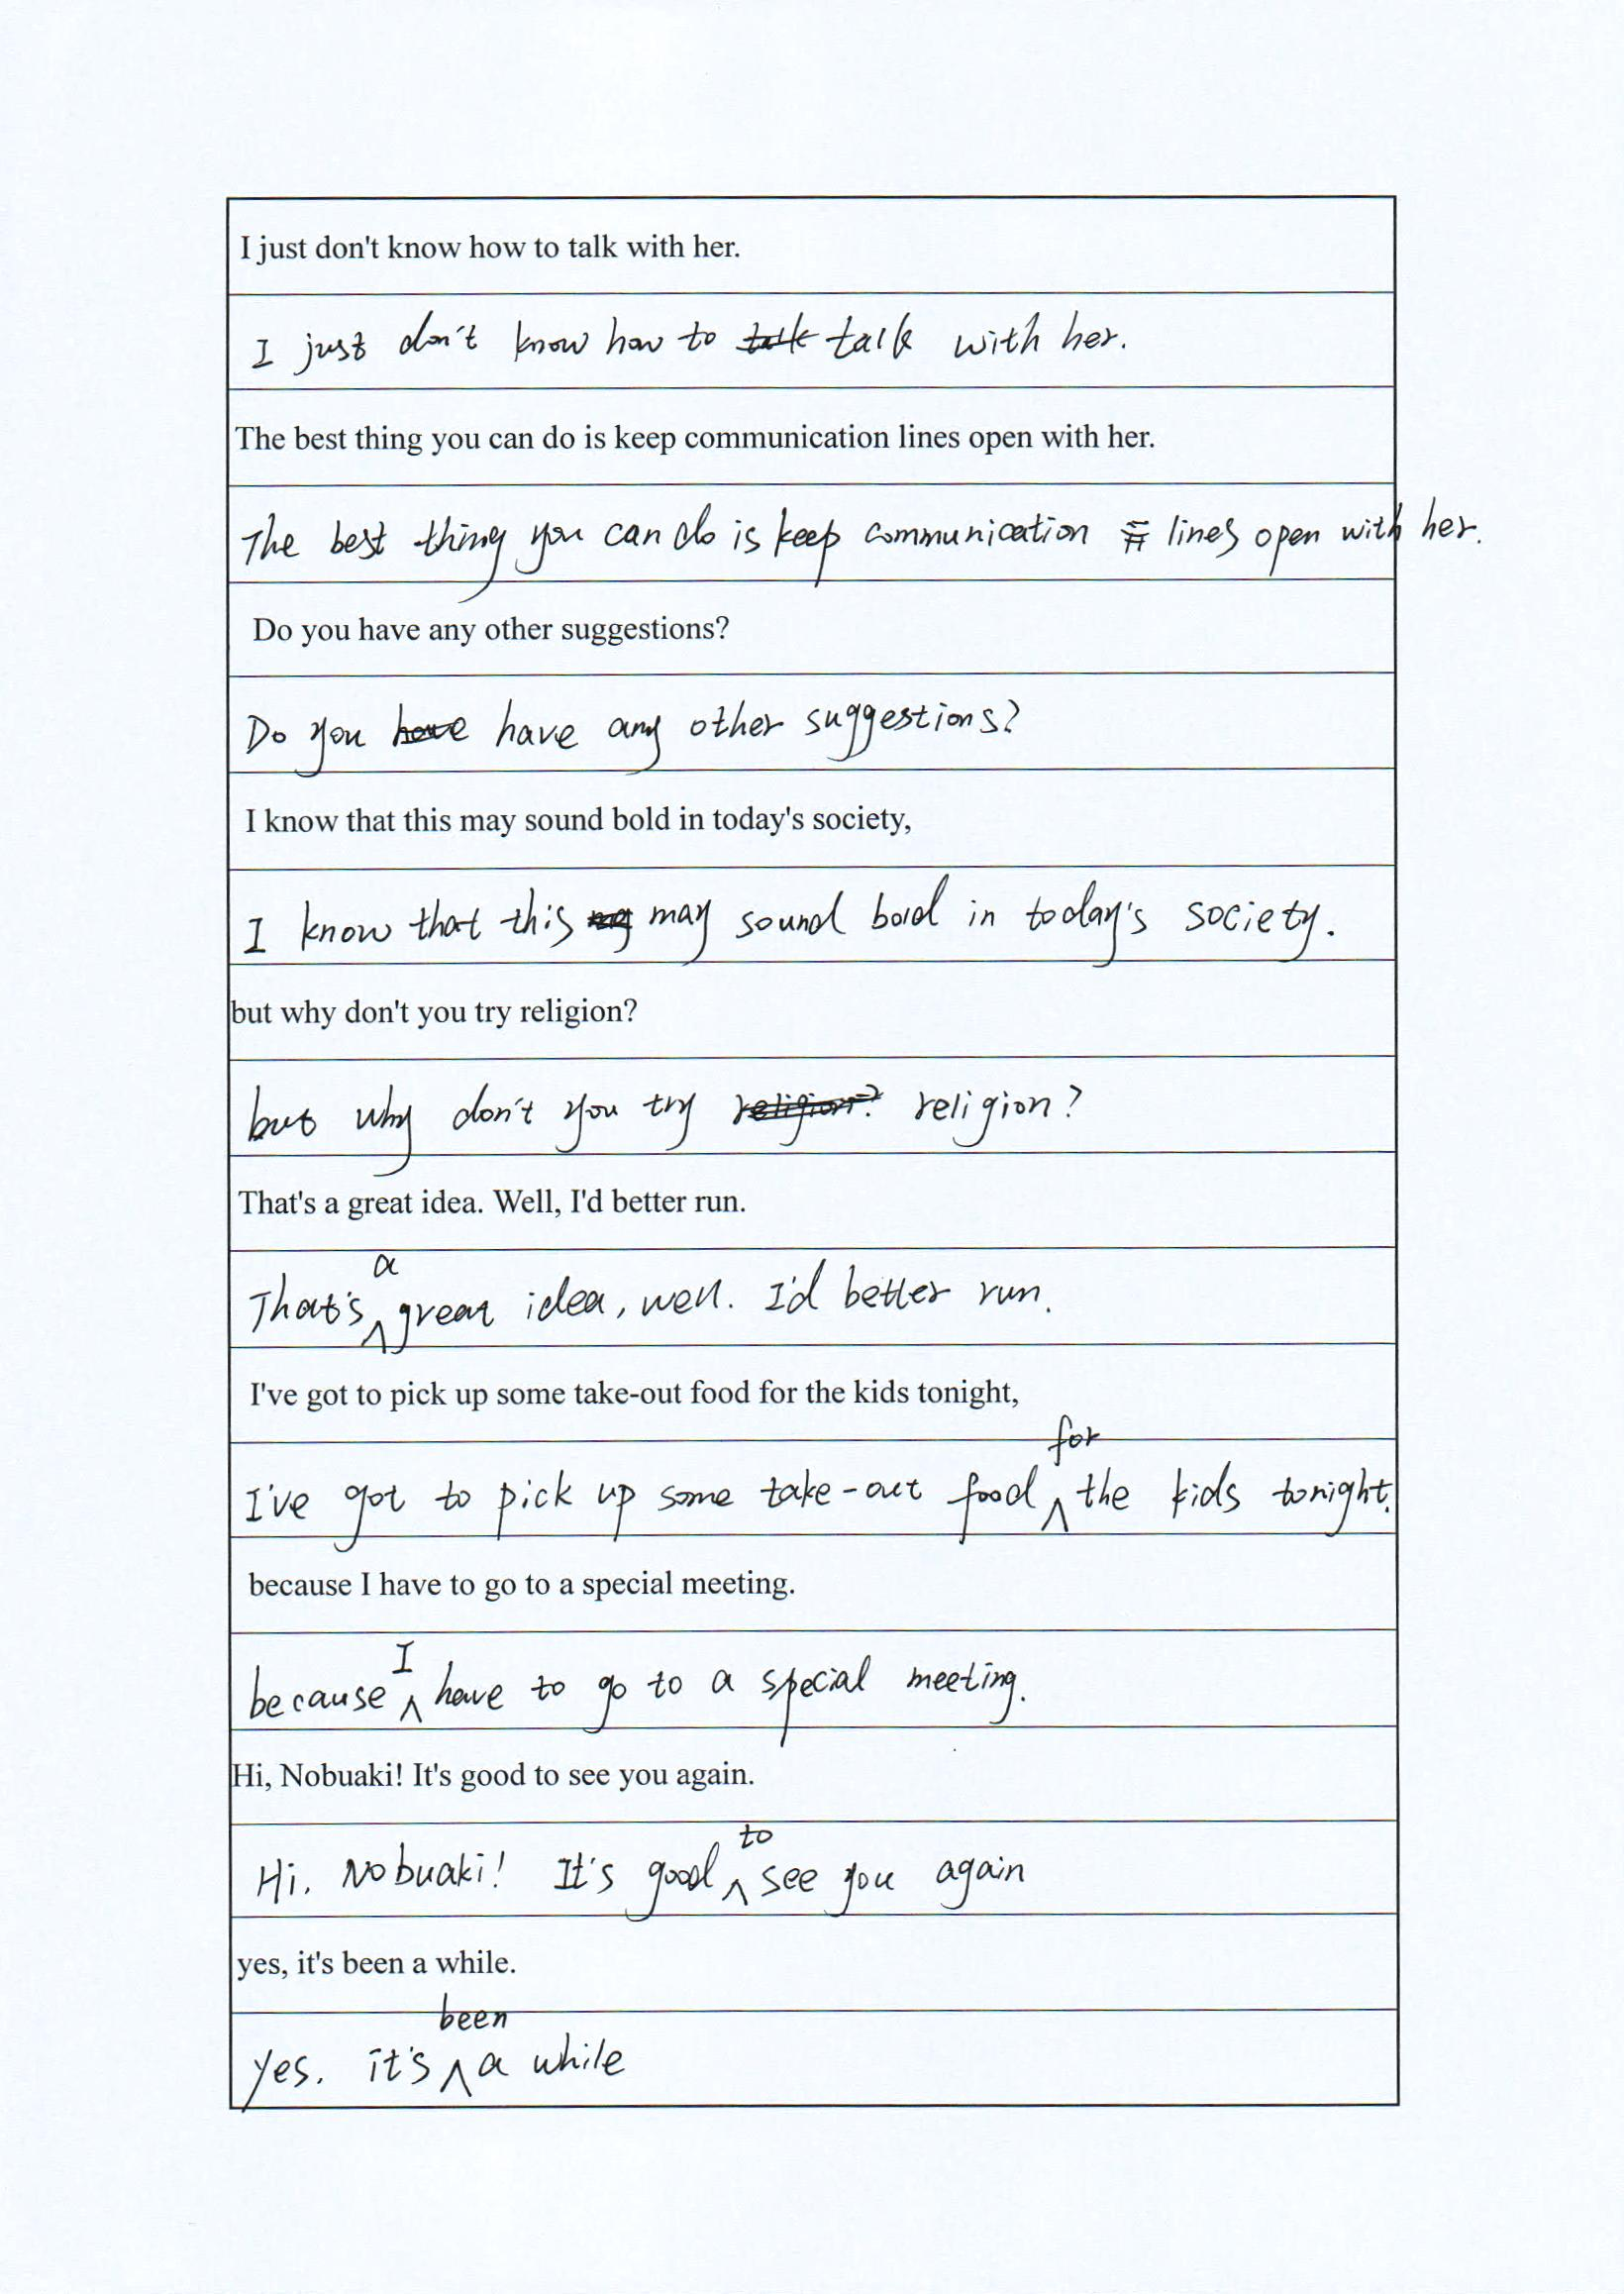 I just don't know how to talk with her.
I just don't know how to talk talk with her.
The best thing you can do is keep communication lines open with her.
The best thing you can do is keep communication lines open with her.
Do you have any other suggestions?
Do you have have any other suggestions?
I know that this may sound bold in today's society,
I know that this may sound bold in today's society.
but why don't you try religion?
but why don't you try religion? religion?
That's a great idea. Well, I'd better run.
That's a great idea, well. I'd better run.
I've got to pick up some take-out food for the kids tonight,
I've got to pick up some take-out food for the kids tonight.
because I have to go to a special meeting.
because I have to go to a special meeting.
Hi, Nobuaki! It's good to see you again.
Hi. Nobuaki! It's good to see you again
yes, it's been a while.
yes. it's been a while